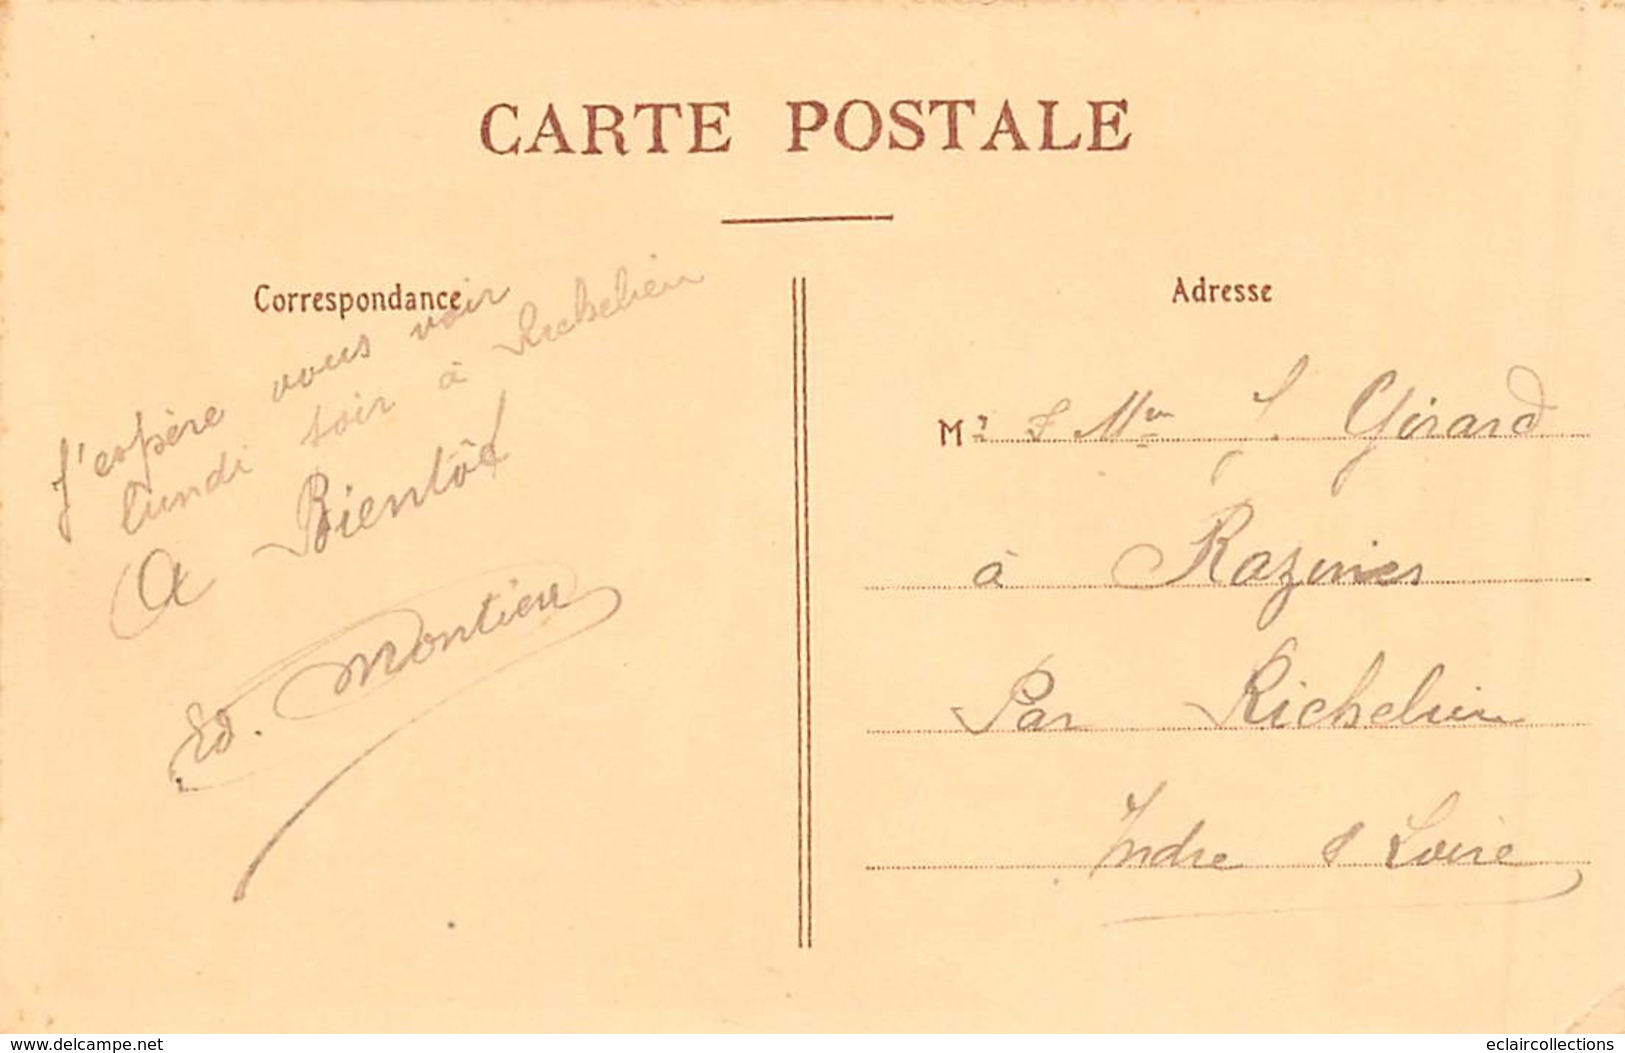 CARTE POSTALE
Correspondance
J'espère vous voir
lundi soir à Richelieu
A Bientôt
Ed.
Adresse
Mr & Mme J. Girard
à Razines
Par Richelieu
Indre & Loire
www.delcampe.net
eclaircollections